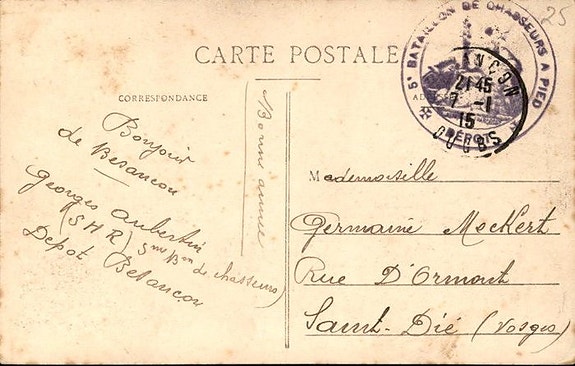 25
CARTE POSTALE
5e BATAILLON DE CHASSEURS A PIED
DÉPOT
21 45
7 - 1
15
DOUBS
CORRESPONDANCE
Bonjour
de Besancon
Georges Aubertin
(SHR) 5me Bon de chasseurs)
Depot Besancon
Bonne année
Mademoiselle
Germaine Mockert
Rue D'Ormont
Saint-Dié (Vosges)